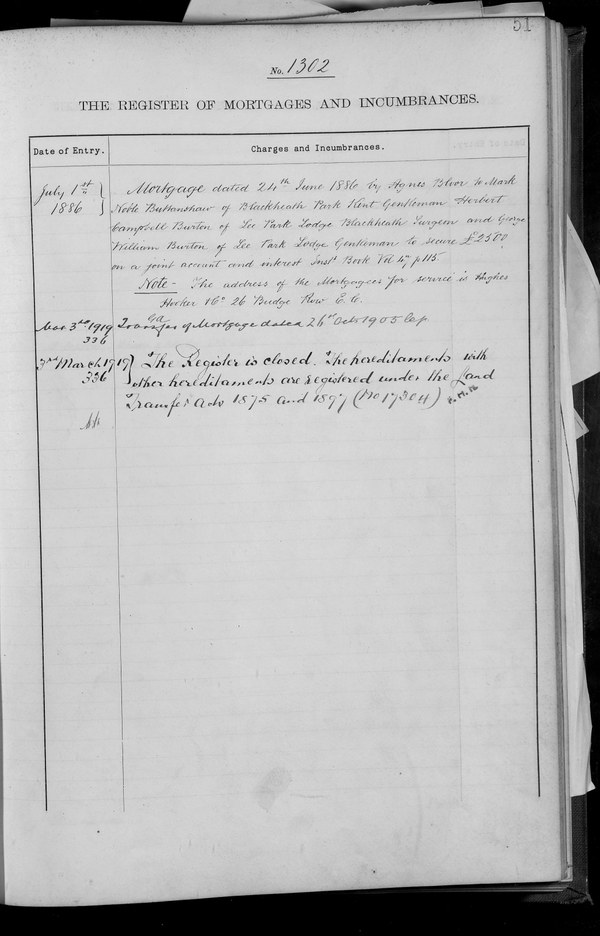 51
No. 1302
THE REGISTER OF MORTGAGES AND INCUMBRANCES.
Date of Entry.
Charges and Incumbrances.
July 1st
1886
Mortgage dated 24th June 1886 by Agnes Bloor to Mark
Noble Buttanshaw of Blackheath Park Kent Gentleman Herbert
Campbell Burton of Lee Park Lodge Blackheath Surgeon and George
William Burton of Lee Park Lodge Gentleman to secure £2500
on a joint account and interest Inst Book Vol 47 p 115
Note - The address of the Mortgagees for service is Hughes
Hooker & Co 26 Budge Row E.C.
Mar 3rd 1919
336
Transfer of Mortgage dated 26th Octr 1905
3rd March 1919
336
The Register is closed. The hereditaments with
other hereditaments are registered under the Land
Transfer Acts 1875 and 1897 (No 17304)